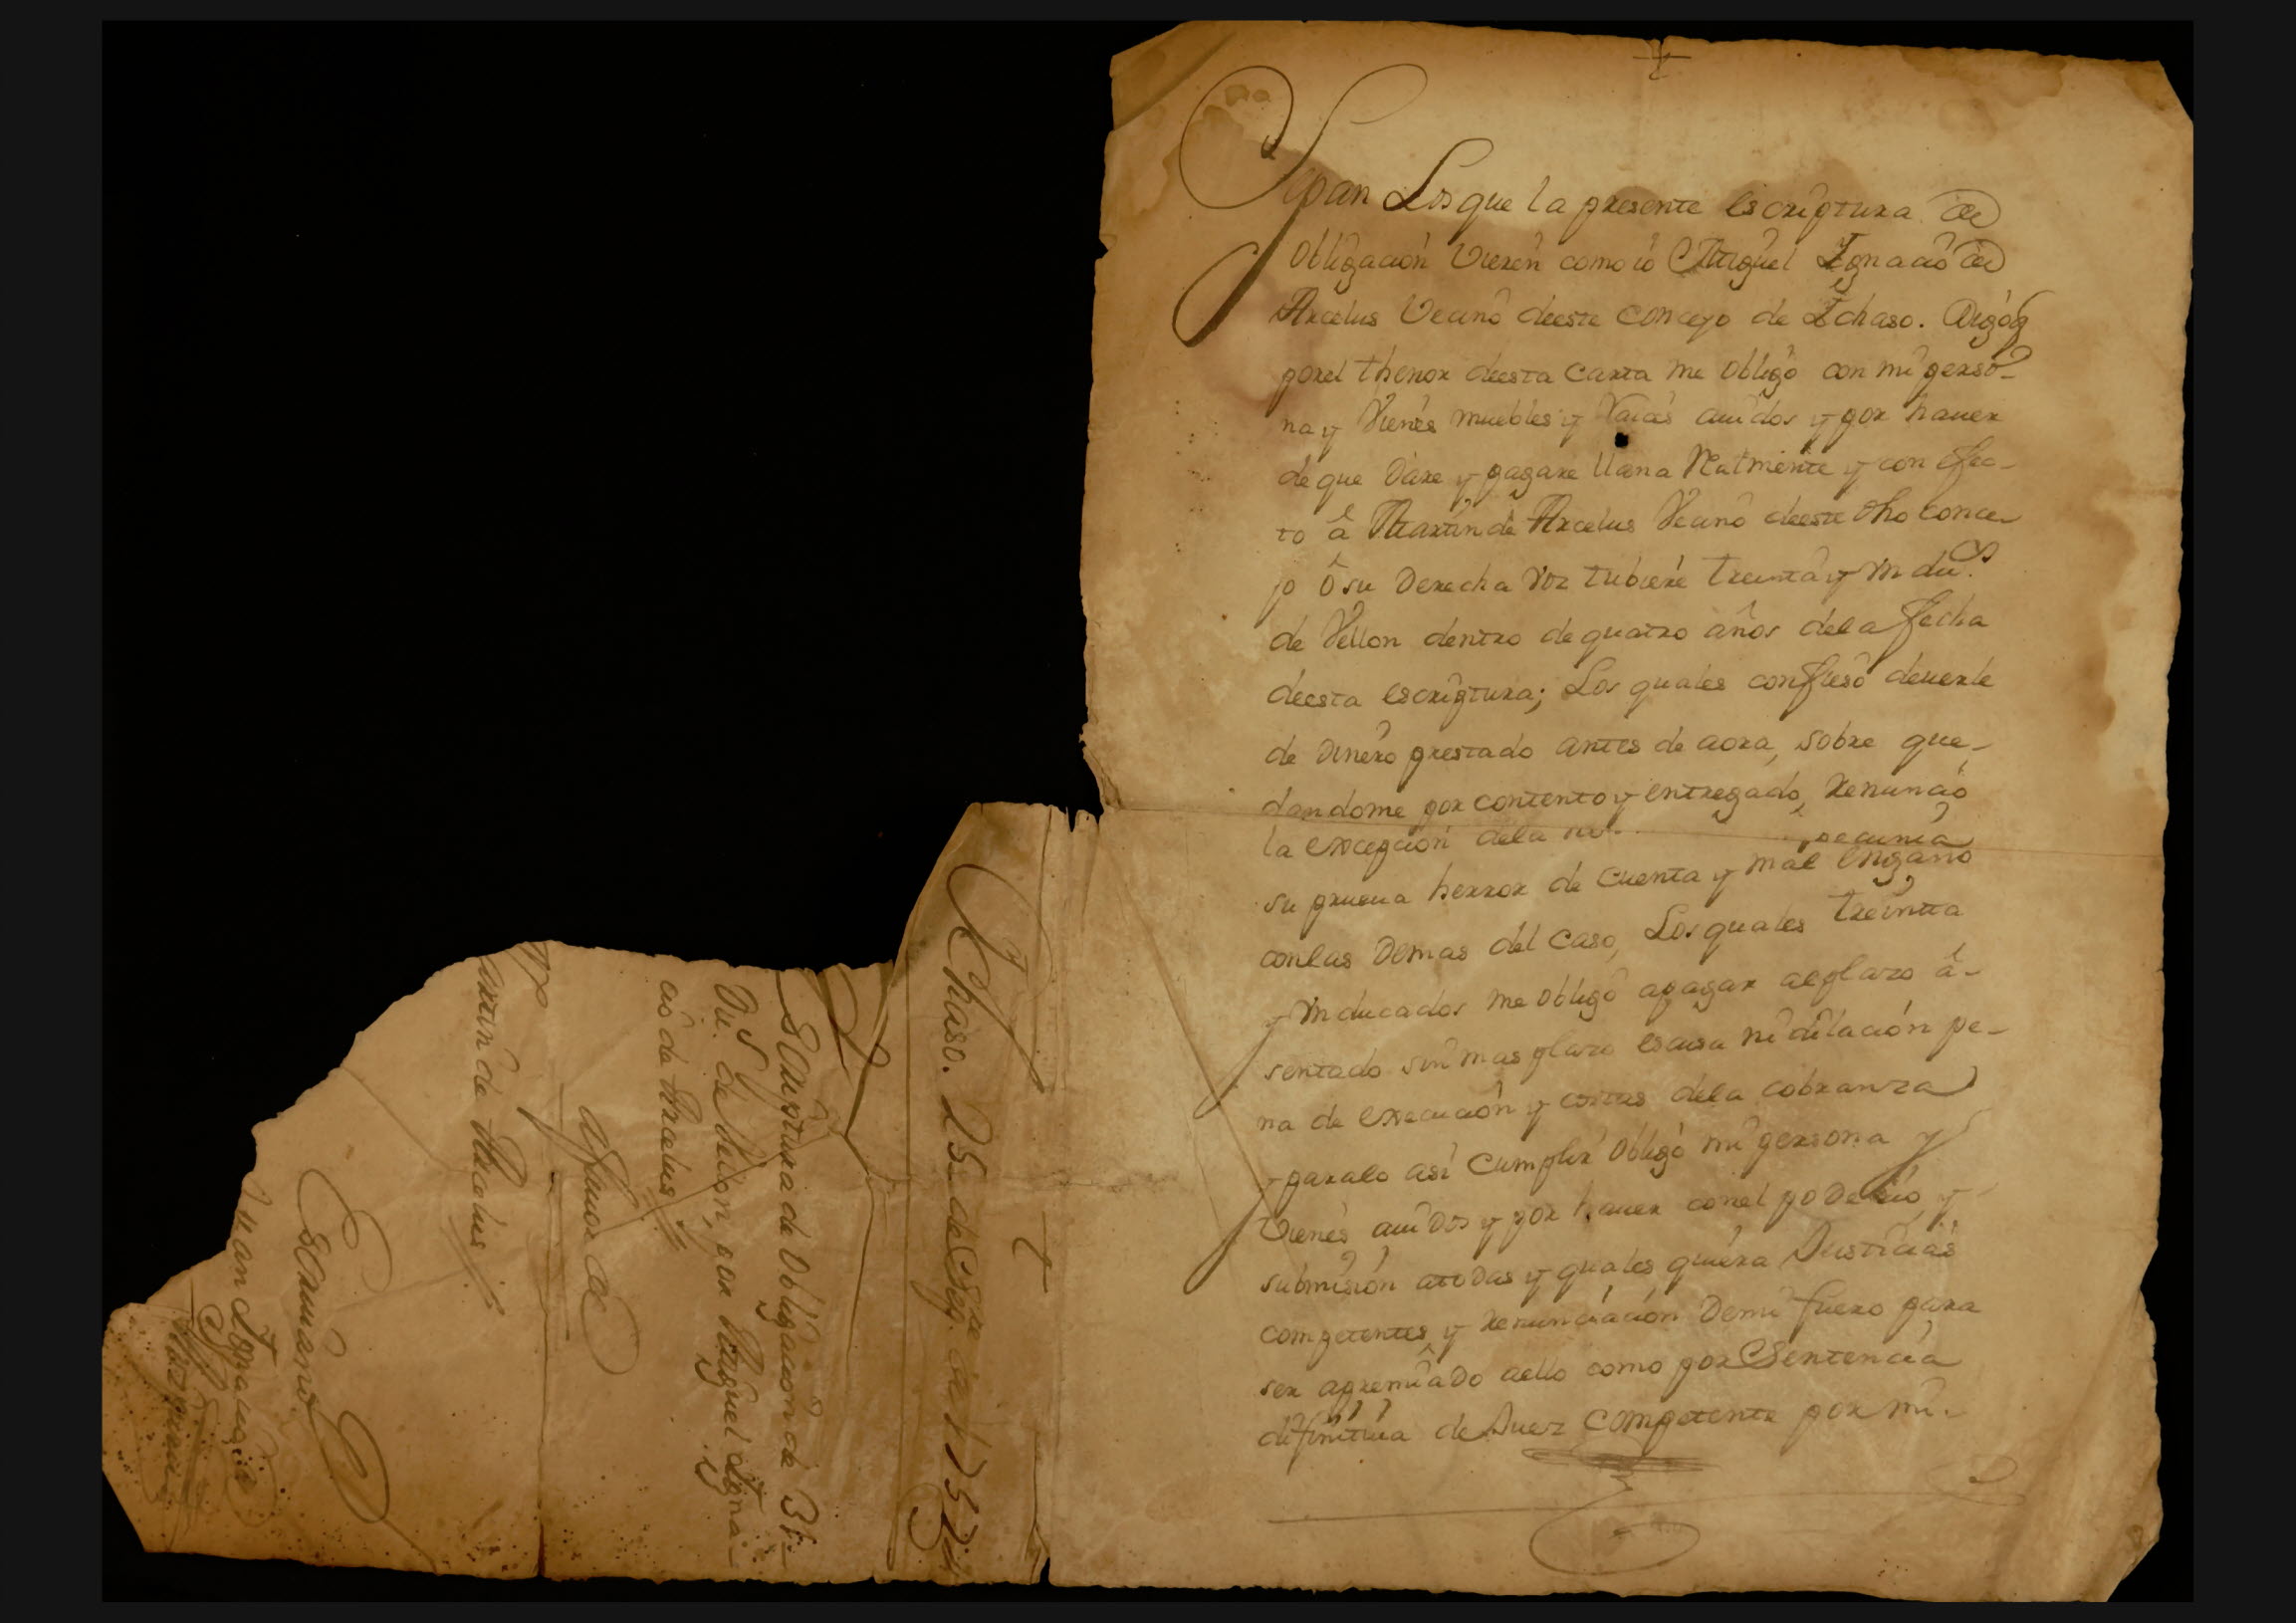 Sepan Los que la presente escriptura de
obligacion vieren como io Miguel Ignacio de
Arcelus vecino de este concejo de Ichaso. Digo q
por el thenor de esta carta me obligo con mi perso-
na y vienes muebles y raices auidos y por hauer
de que Dare y pagare llana realmente y con efec-
to â Martin de Arcelus vecino de este dho conce-
jo ô su Derecha voz tubiere treinta y un du.s
de vellon dentro de quatro años de la fecha
de esta escriptura; Los quales confieso deuerle
de Dinero prestado antes de aora, sobre que,-
dandome por contento y entregado, renuncio
la excepcion de la pecunia
su prueua herror de cuenta y mal engaño
con las Demas del caso, Los quales treinta
y un ducados me obligo a pagar al plazo â-
sentado sin mas plazo escusa ni dilacion pe-
na de execucion y costas de la cobranza
y para lo asi cumplir obligo mi persona y
vienes auidos y por hauer con el poderio, y
submision a todas y quales quiera Justicias
competentes, y renunciacion De mi fuero para
ser apremiado a ello como por Sentencia
difinitiua de Juez competente por mi.-
Ichaso. 25 de Sep.re de 1752
Escriptura de obligacion de 31-
Du.s de vellon, por Miguel Igna-
cio de Arcelus
A fauor de
artin de Arcelus
Escriuano
Juan Ignacio